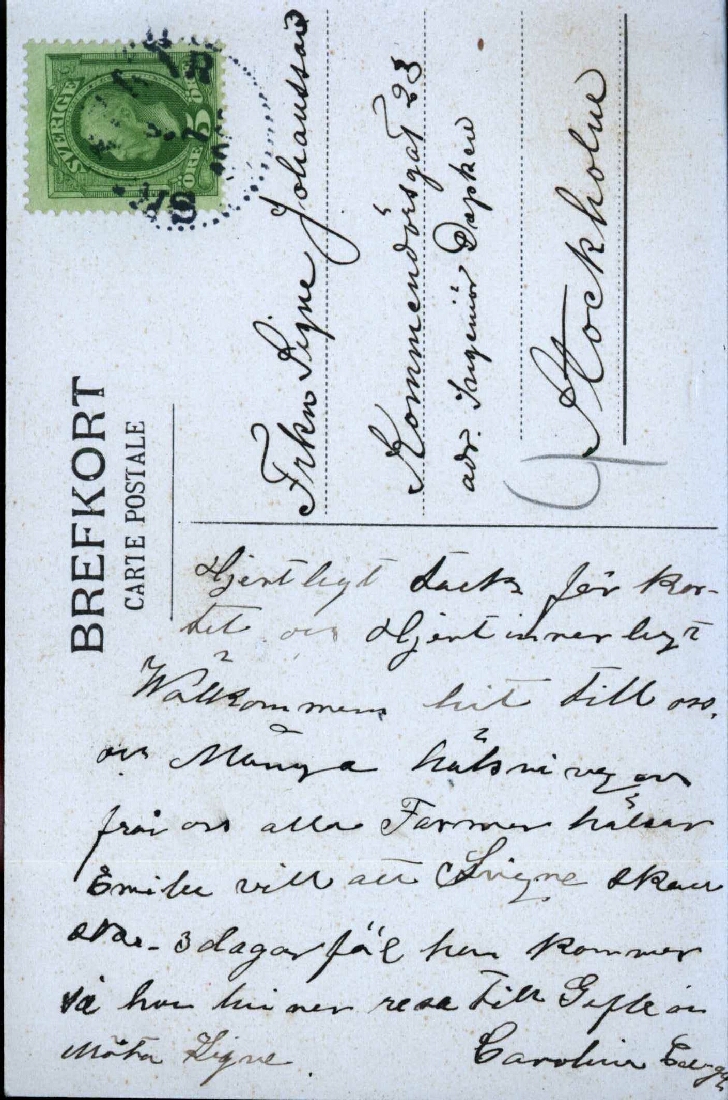 SVERIGE
5 ÖRE
BREFKORT
CARTE POSTALE
Frkn Signe Johansson
Kommendörsgat 28
adr. Ingeniör Dapken
Stockholm
4
Hjertligt tack för kor-
tet oc Hjert innerligt
Wälkommen hit till oss.
oc Många hälsningar
från oss alla Farmor hälsar
Emilie vill att Signe skall
3 dagar för hon kommer
så hon hinner resa till Gefle oc
Möta Signe.
Carolina